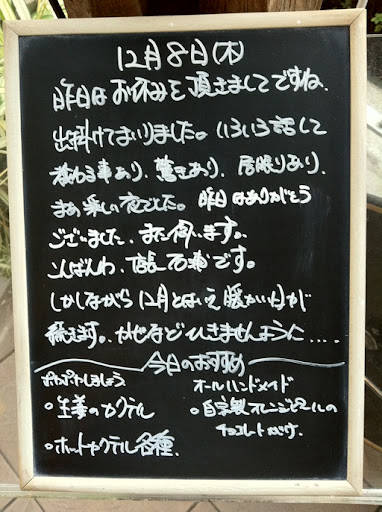 12月8日(木)
昨日はお休みを頂きましてですね、
出掛けてまいりました。いろいろ話して
教わる事あり、驚きあり、居眠りあり、
まぁ楽しい夜でした。昨日はありがとう
ございました、また伺います。
こんばんわ、店長石浦です。
しかしながら12月とはいえ暖かい日が
続きます。かぜなどひきませんように....
今日のおすすめ
ポカポカしましょう
○生姜のカクテル
○ホットカクテル各種、
オールハンドメイド
○自家製オレンジピールの
チョコレートがけ.